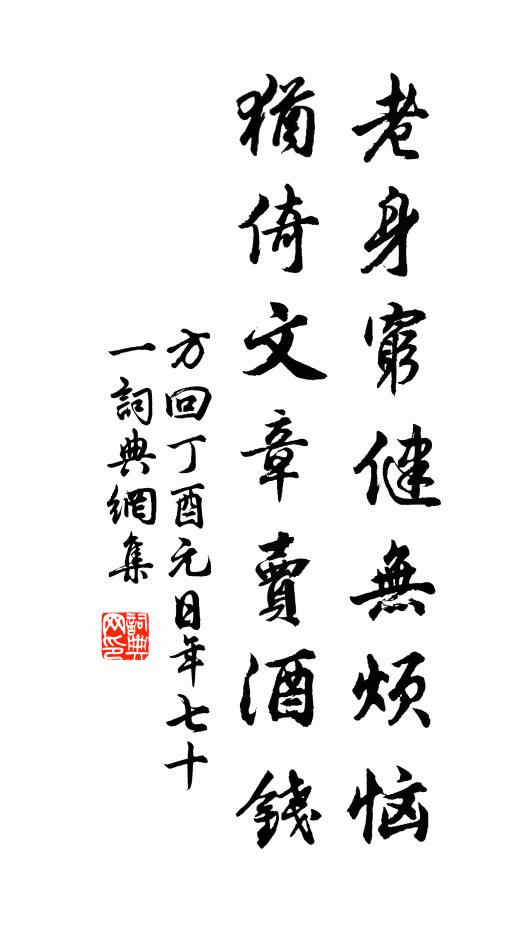 老身窮健無煩惱
猶倚文章賣酒錢
方回丁酉元日年七十
一詞典網集
詞典网印